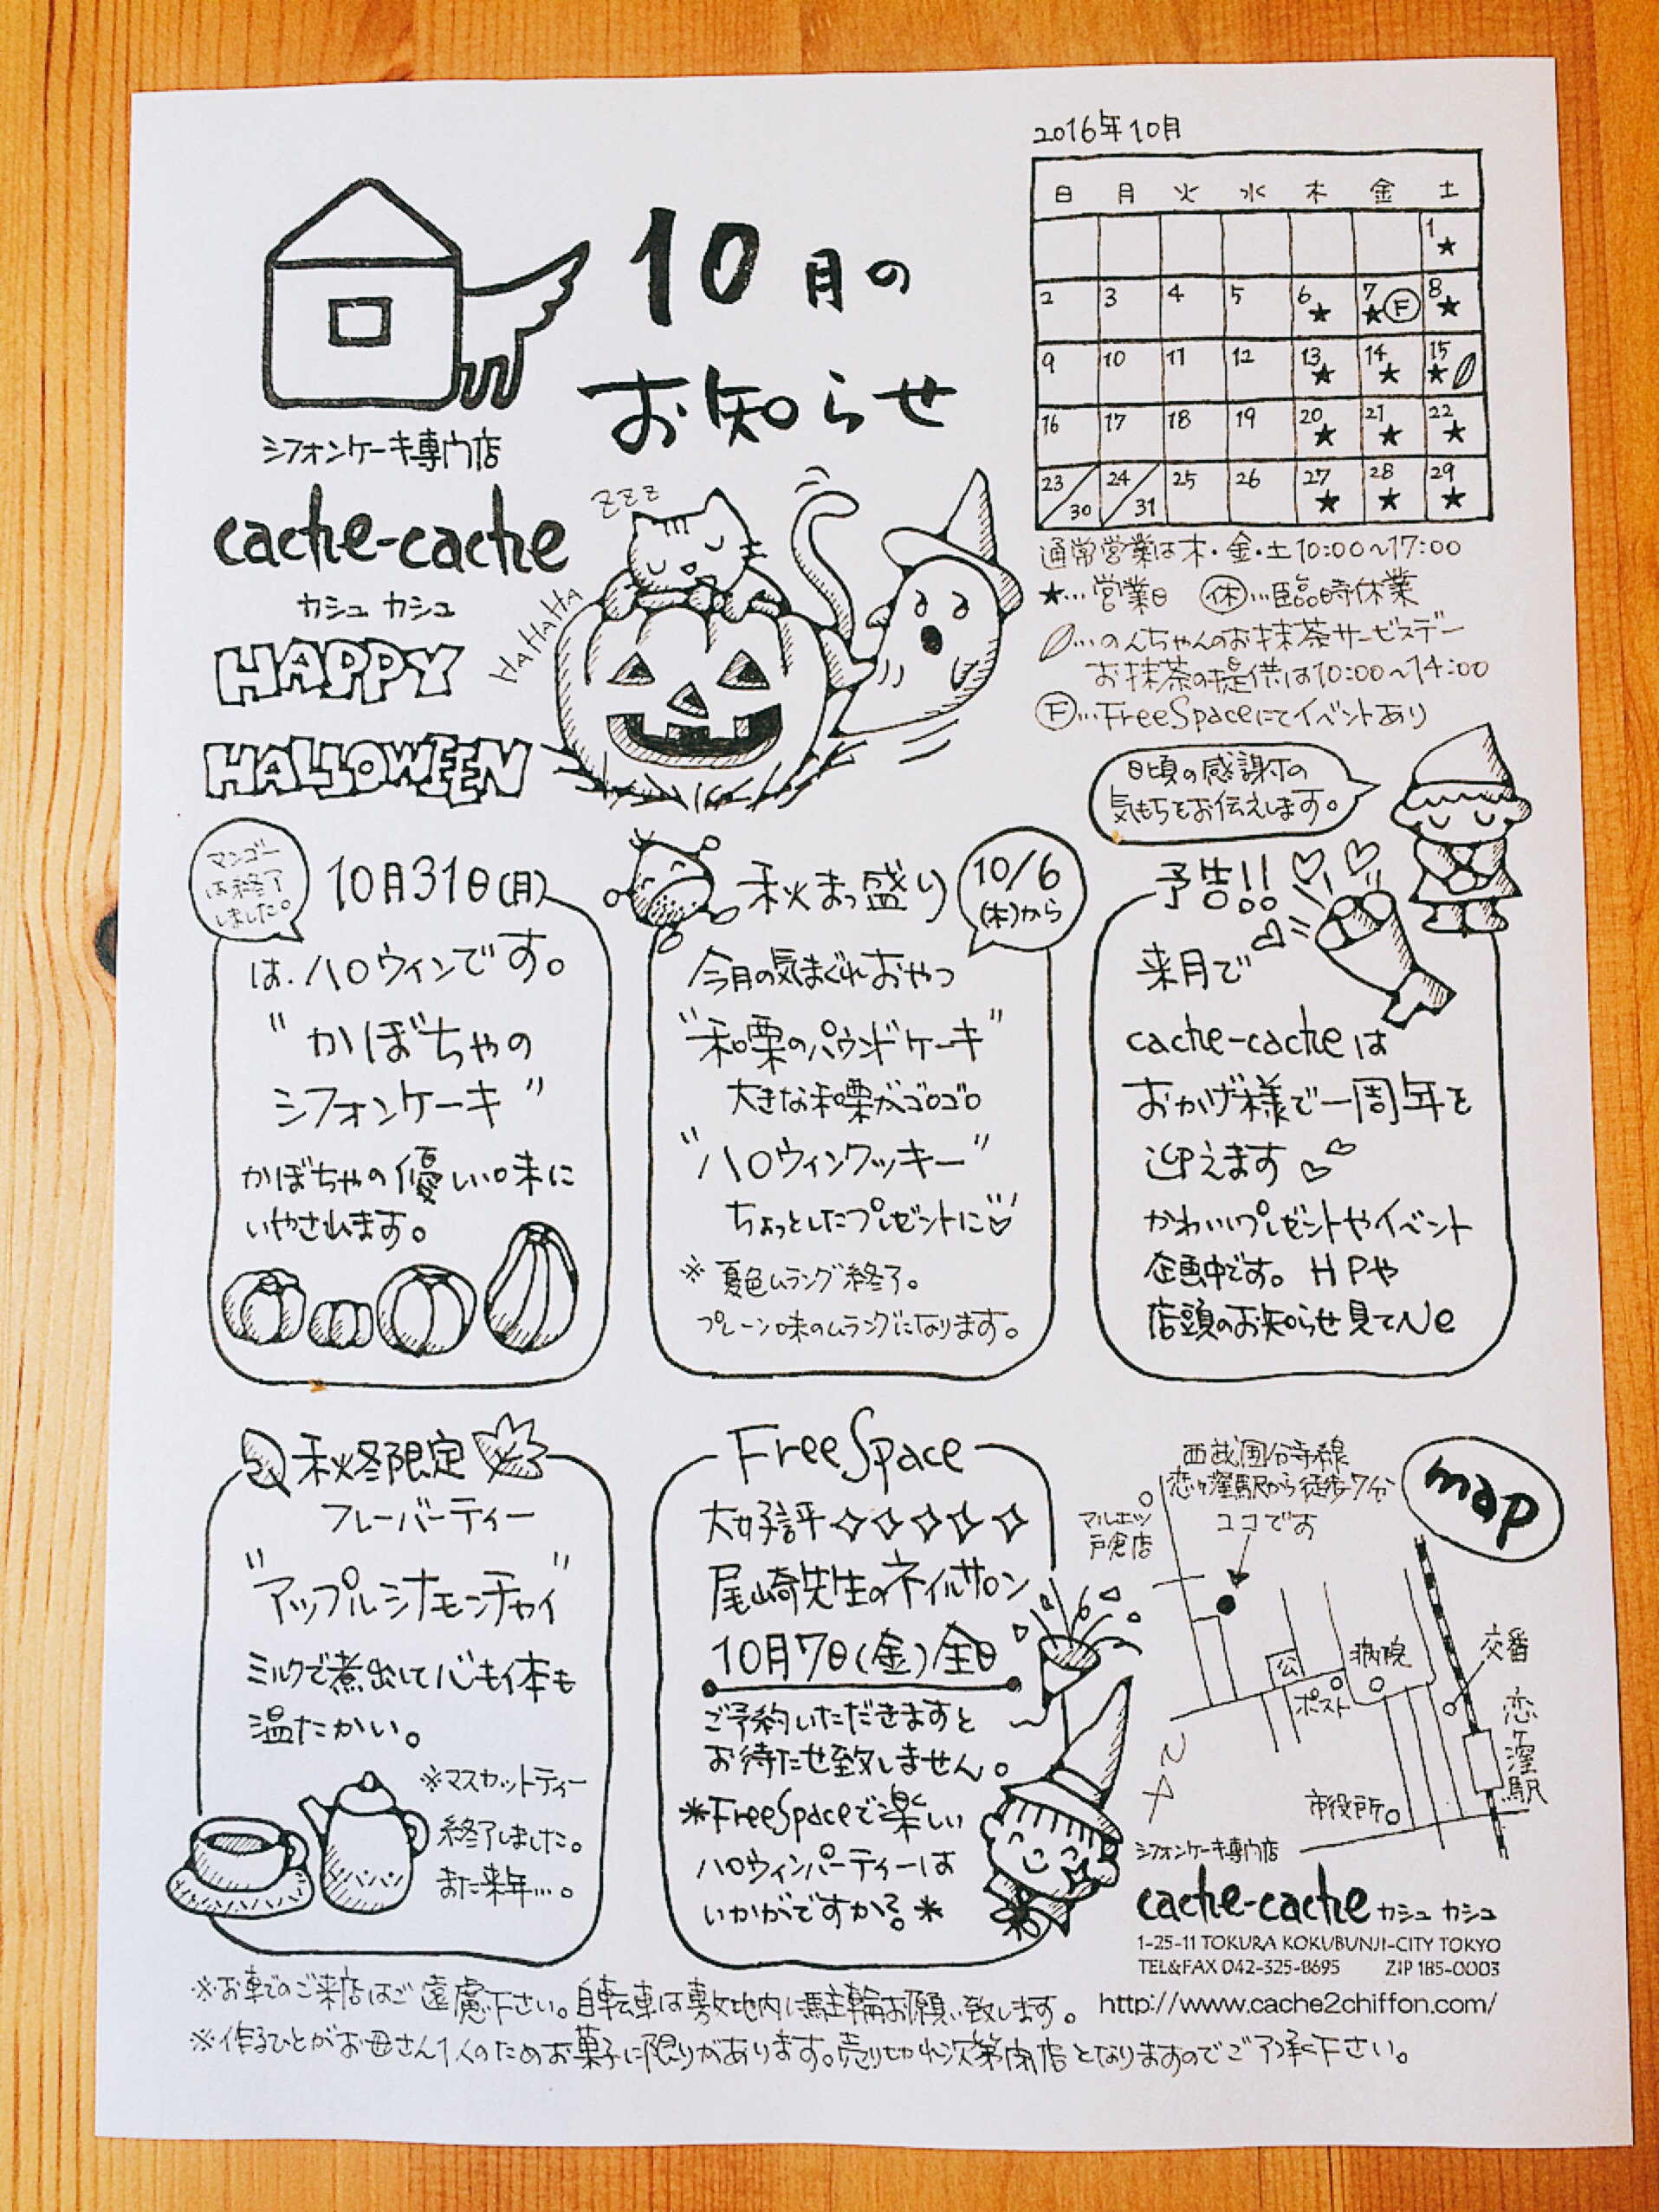 10月の
お知らせ
シフォンケーキ専門店
cache-cache
カシュ カシュ
HAPPY
HALLOWEEN
zzz
HAHAHAHA
2016年10月
日 月 火 水 木 金 土
1★
2 3 4 5 6★ 7★Ⓕ 8★
9 10 11 12 13★ 14★ 15★
16 17 18 19 20★ 21★ 22★
23/30 24/31 25 26 27★ 28★ 29★
通常営業は木・金・土10:00~17:00
★…営業日 ㊡…臨時休業
…のんちゃんのお抹茶サービスデー
お抹茶の提供は10:00~14:00
Ⓕ…FreeSpaceにてイベントあり
日頃の感謝の
気もちをお伝えします。
マンゴー
は終了
しました。
10月31日(月)
は、ハロウィンです。
"かぼちゃの
シフォンケーキ"
かぼちゃの優しい味に
いやされます。
秋まっ盛り
10/6
(木)から
今月の気まぐれおやつ
"和栗のパウンドケーキ"
大きな和栗がゴロゴロ
"ハロウィンクッキー"
ちょっとしたプレゼントに♡
※夏色ムラング終了。
プレーン味のムラングになります。
予告!!
来月で
cache-cacheは
おかげ様で一周年を
迎えます♡♡
かわいいプレゼントやイベント
企画中です。HPや
店頭のお知らせ見てNe
秋冬限定
フレーバーティー
"アップルシナモンチャイ"
ミルクで煮出して心も体も
温たかい。
※マスカットティー
終了しました。
また来年…。
FreeSpace
大好評✧✧✧✧✧
尾崎先生のネイルサロン
10月7日(金)全日
ご予約いただきますと
お待たせ致しません。
*FreeSpaceで楽しい
ハロウィンパーティーは
いかがですか?。*
map
西武国分寺線
恋ヶ窪駅から徒歩7分
ココです
マルエツ
戸倉店
公
ポスト
病院
交番
恋ヶ窪駅
市役所
シフォンケーキ専門店
cache-cache カシュ カシュ
1-25-11 TOKURA KOKUBUNJI-CITY TOKYO
TEL&FAX 042-325-8695 ZIP 185-0003
http://www.cache2chiffon.com/
※お車でのご来店はご遠慮下さい。自転車は敷地内に駐輪お願い致します。
※作るひとがお母さん1人のためお菓子に限りがあります。売り切れ次第閉店となりますのでご了承下さい。